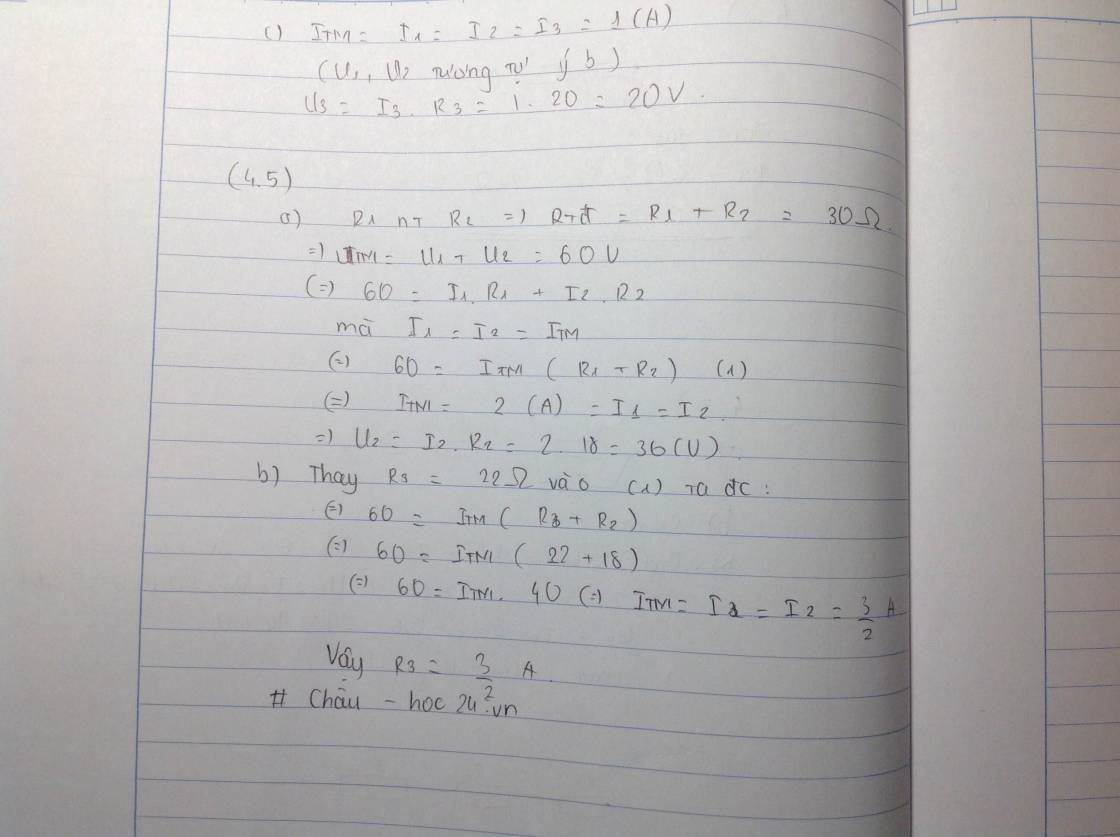 c) ITM = I1 = I2 = I3 = 1 (A)
(U1, U2 tương tự ý b)
U3 = I3. R3 = 1. 20 = 20V.
(4.5)
a) R1 nt R2 => Rtđ = R1 + R2 = 30Ω.
=> UTM = U1 + U2 = 60V
(=) 60 = I1. R1 + I2. R2
mà I1 = I2 = ITM
(=) 60 = ITM ( R1 + R2 ) (1)
(=) ITM = 2 (A) = I1 = I2.
=) U2 = I2. R2 = 2. 18 = 36(V).
b) Thay R3 = 22Ω vào (1) ta đc :
(=) 60 = ITM ( R3 + R2 )
(=) 60 = ITM ( 22 + 18 )
(=) 60 = ITM. 40 (=) ITM = I3 = I2 = 3/2 A
Vậy R3 = 3/2 A.
# Châu - hoc 24.vn